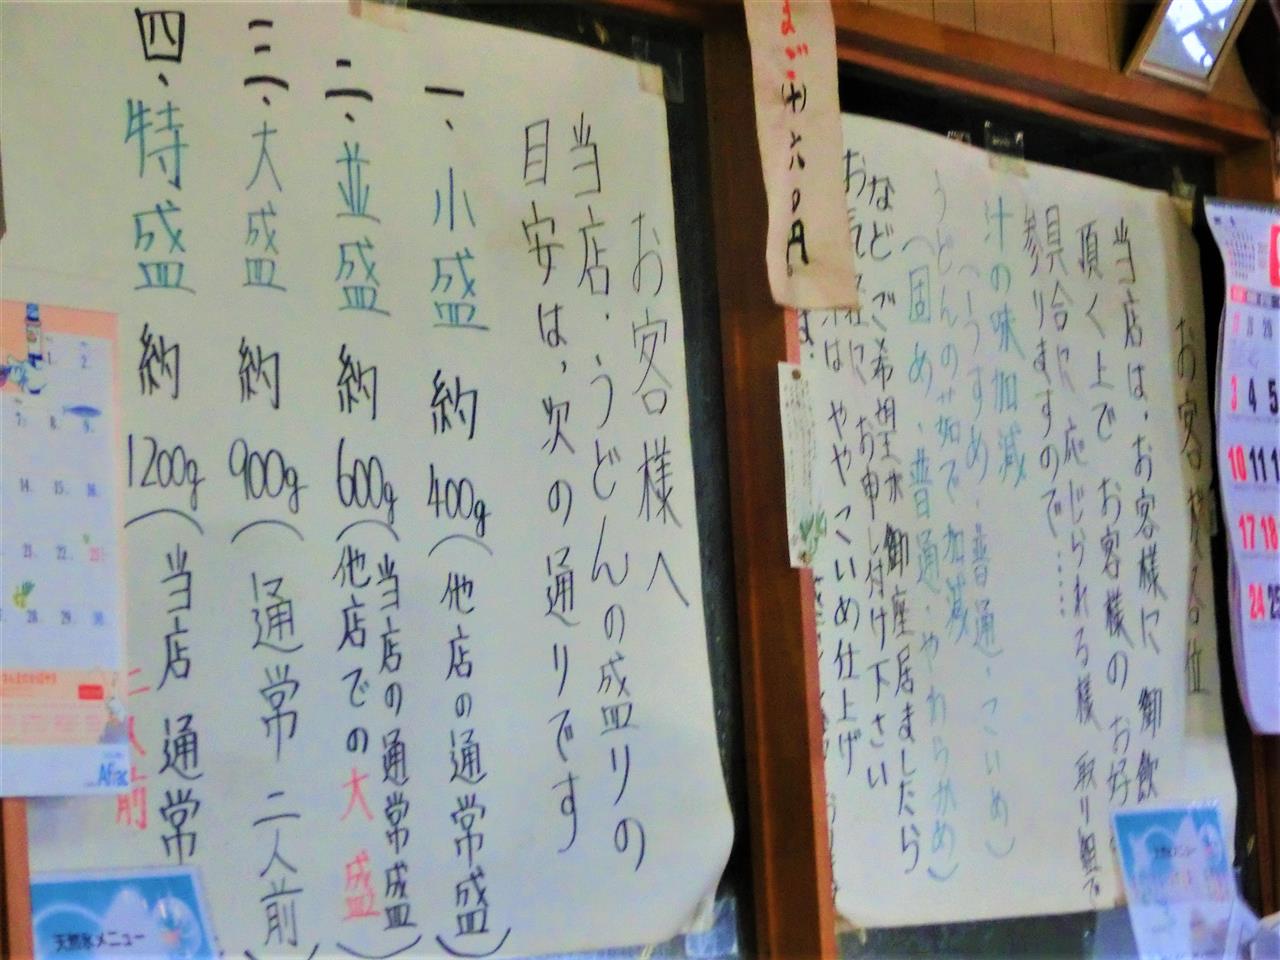 お客様へ
当店、うどんの盛りの
目安は、次の通りです
一、小盛 約400g（他店の通常盛）
二、並盛 約600g（当店の通常盛
他店での大盛）
三、大盛 約900g（通常二人前）
四、特盛 約1200g（当店通常
二人前
当店は、お客様に御飲
頂く上でお客様のお好
具合に応じられる様取り組で
参りますので……
汁の味加減
（うすめ、普通、こいめ）
うどんの茹で加減
（固め、普通、やわらかめ）
などご希望が御座居ましたら
お申し付け下さい
ややこいめ仕上げ
たまご(十)六〇円
天然氷メニュー
Aflac